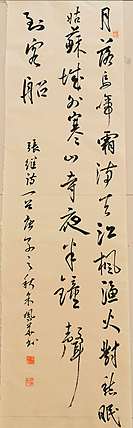 月落烏啼霜滿天江楓漁火對愁眠
姑蘇城外寒山寺夜半鐘聲
到客船
張繼詩一首庚子之秋朱鳳